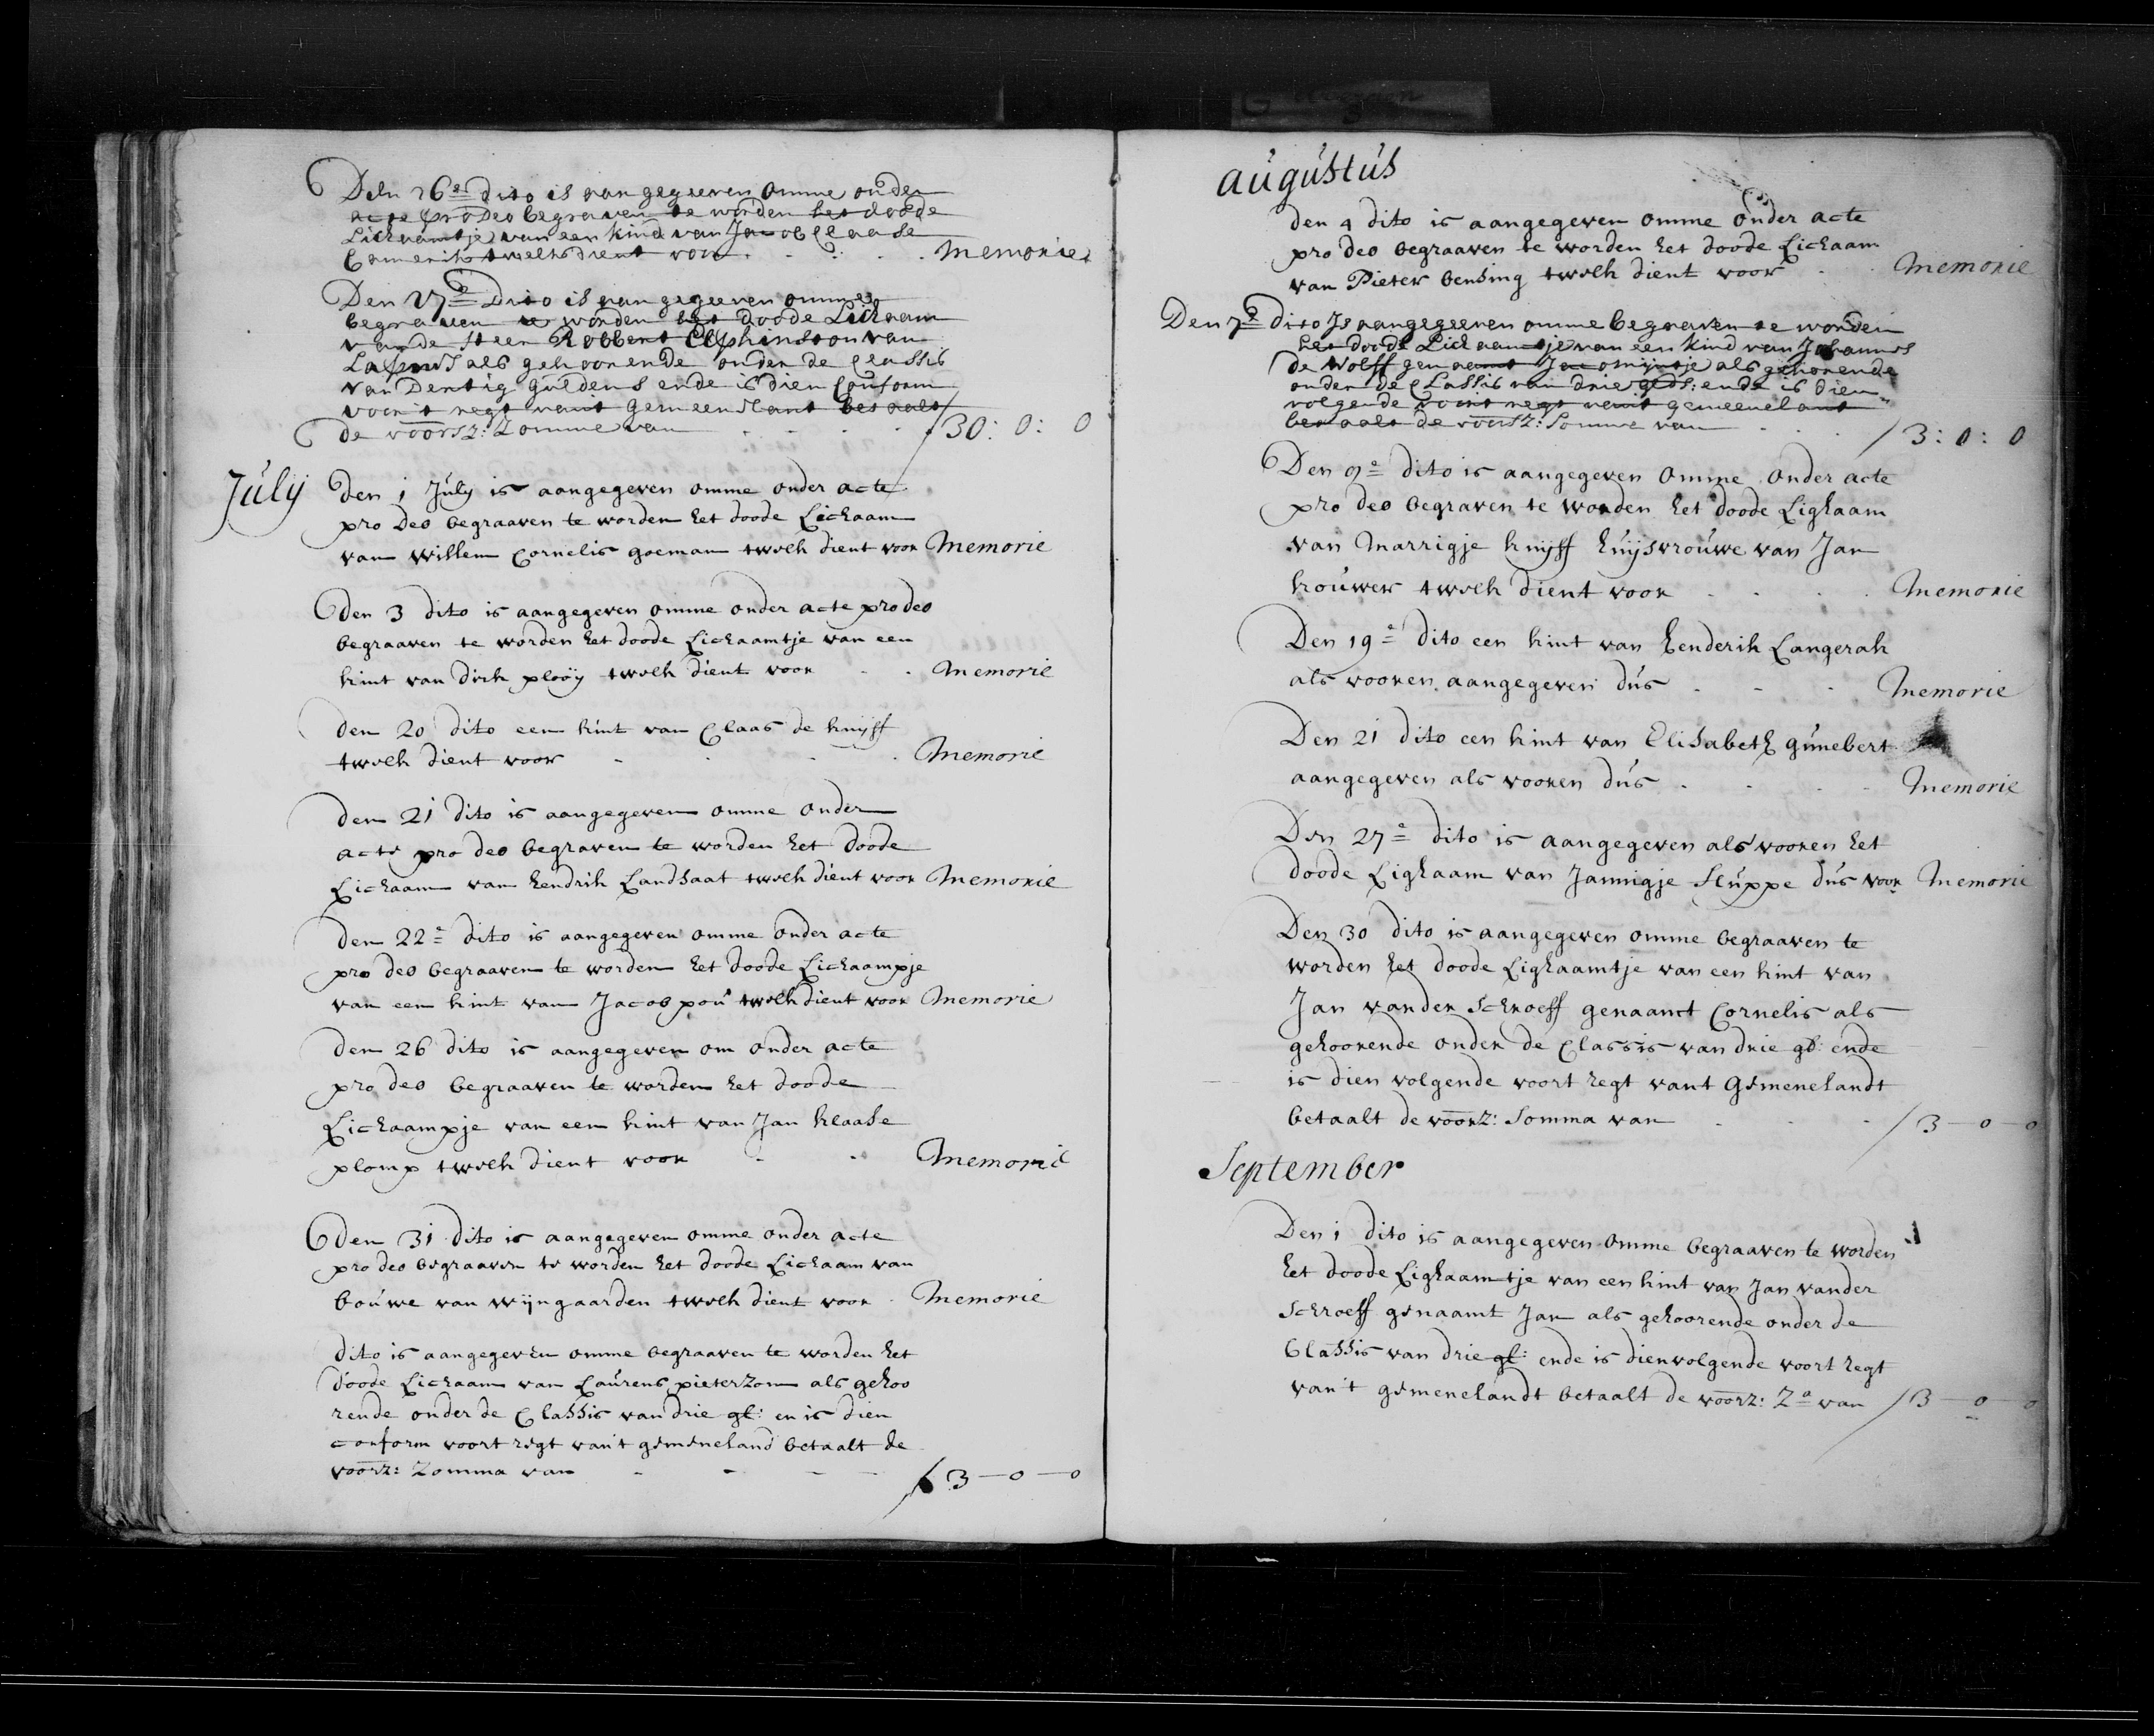 Den 26e dito is aangegeeven omme onder
acte pro Deo begraven te worden het doode
Lichaamtje van een kind van Jacob Claase
Camerik twelk dient voor . . . . Memorie
Den 27e Dito is aangegeeven omme
begraven te worden het doode Lichaam
van de Heer Robbert Elphinstoon van
als gehoorende onder de Classis
van Dertig guldens ende is dien Conform
voor 't regt van 't gemeenelant betaalt
de voorsz: Zomme van . . . . ƒ 30: 0: 0
July
den 1 July is aangegeven omme onder acte
pro deo begraaven te worden het doode Lichaam
van Willem Cornelis goeman twelk dient voor Memorie
den 3 dito is aangegeven omme onder acte pro deo
begraaven te worden het doode Lichaamtje van een
kint van dirk plooij twelk dient voor . . Memorie
den 20 dito een kint van Claas de knijff
twelk dient voor . . . . Memorie
den 21 dito is aangegeven omme onder
acte pro deo begraven te worden het doode
Lichaam van hendrik Landsaat twelk dient voor Memorie
den 22e dito is aangegeven omme onder acte
pro deo begraaven te worden het doode Lichaampje
van een kint van Jacob pou twelk dient voor Memorie
den 26 dito is aangegeven om onder acte
pro deo begraaven te worden het doode
Lichaampje van een kint van Jan klaase
plomp twelk dient voor . . Memorie
den 31 dito is aangegeven omme onder acte
pro deo begraaven te worden het doode Lichaam van
bouwe van wijngaarden twelk dient voor . Memorie
dito is aangegeven omme begraaven te worden het
doode Lichaam van Laurens pieterzon als gehoo
rende onder de Classis van drie gl: en is dien
conform voort regt van't gemeneland betaalt de
voorz: Zomma van - - - - ƒ 3 - 0 - 0
augustus
den 4 dito is aangegeven omme onder acte
pro deo begraaven te worden het doode Lichaam
van Pieter bensing twelk dient voor . . Memorie
Den 7e dito Is aangegeeven omme begraven te worden
het doode Lichaamtje van een kind van Johannes
de Wolff genaamt Jacomijntje als gehorende
onder de Classis van drie glds: ende is dien
volgende voor't regt van't gemeenelant
betaalt de voorsz: Somme van . . . ƒ 3: 0: 0
Den 9e dito is aangegeven omme onder acte
pro deo begraven te worden het doode Lighaam
van Marrigje knijff huijsvrouwe van Jan
houwer twelk dient voor . . . . Memorie
Den 19e dito een kint van henderik Langerak
als vooren aangegeven dus . . . Memorie
Den 21 dito een kint van Elisabeth gunebert
aangegeven als vooren dus . . . . Memorie
Den 27e dito is aangegeven als vooren het
doode Lighaam van Jannigje Sluppe dus voor Memorie
Den 30 dito is aangegeven omme begraaven te
worden het doode Lighaamtje van een kint van
Jan vander Schroeff genaamt Cornelis als
gehoorende onder de Classis van drie gl: ende
is dien volgende voort regt vant Gemenelandt
betaalt de voorz: Somma van . . . ƒ 3 - 0 - 0
September
Den 1 dito is aangegeven omme begraaven te worden
het doode Lighaamtje van een kint van Jan vander
Schroeff genaamt Jan als gehoorende onder de
Classis van drie gl: ende is dienvolgende voort regt
van't gemenelandt betaalt de voorz: Za van ƒ 3 - 0 - 0